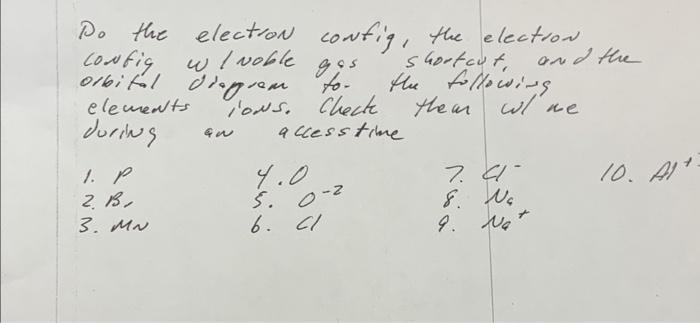 Do the electron config, the electron
config w/ noble gas shortcut, and the
orbital diagram for the following
elements ions. Check them w/ me
during an accesstime
1. P 4. O 7. Cl⁻ 10. Al⁺
2. Br 5. O⁻² 8. Na
3. MN 6. Cl 9. Na⁺